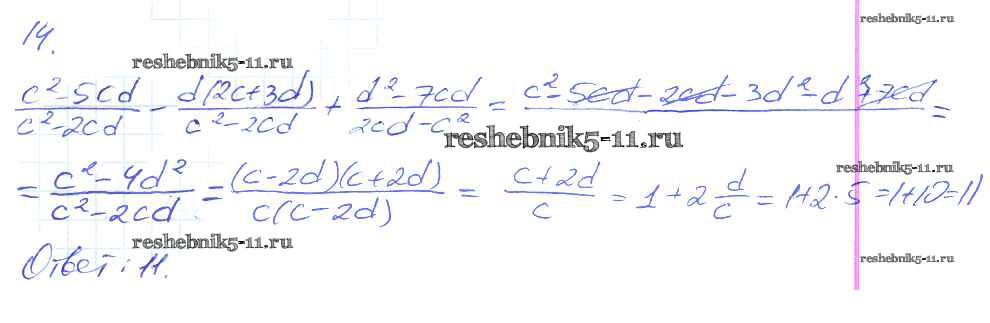 14.
reshebnik5-11.ru
reshebnik5-11.ru
(c²-5cd)/(c²-2cd) - d(2c+3d)/(c²-2cd) + (d²-7cd)/(2cd-c²) = c²-5cd-2cd-3d²-d²+7cd =
reshebnik5-11.ru
= (c²-4d²)/(c²-2cd) = (c-2d)(c+2d)/c(c-2d) = (c+2d)/c = 1+2 d/c = 1+2·5=1+10=11
reshebnik5-11.ru
reshebnik5-11.ru
Ответ: 11.
reshebnik5-11.ru